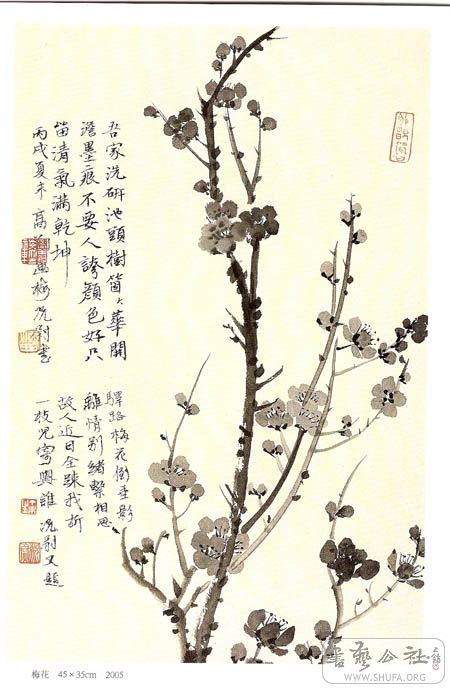 吾家洗研池頭樹箇々華開
澹墨痕不要人誇顏色好只
留清氣滿乾坤
丙戌夏末高 梅 尉書
驛路梅花倒垂影
離情別緒繫相思
故人近日全疎我折
一枝兒寄與誰 尉又題
梅花 45×35cm 2005
書藝公社
WWW.SHUFA.ORG